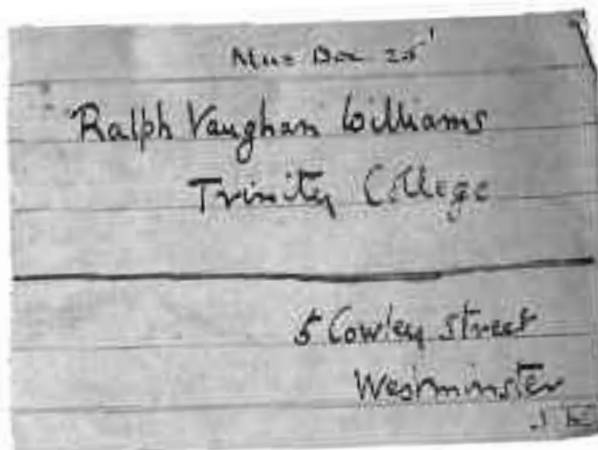 Mus Doc 25'
Ralph Vaughan Williams
Trinity College
5 Cowley Street
Westminster